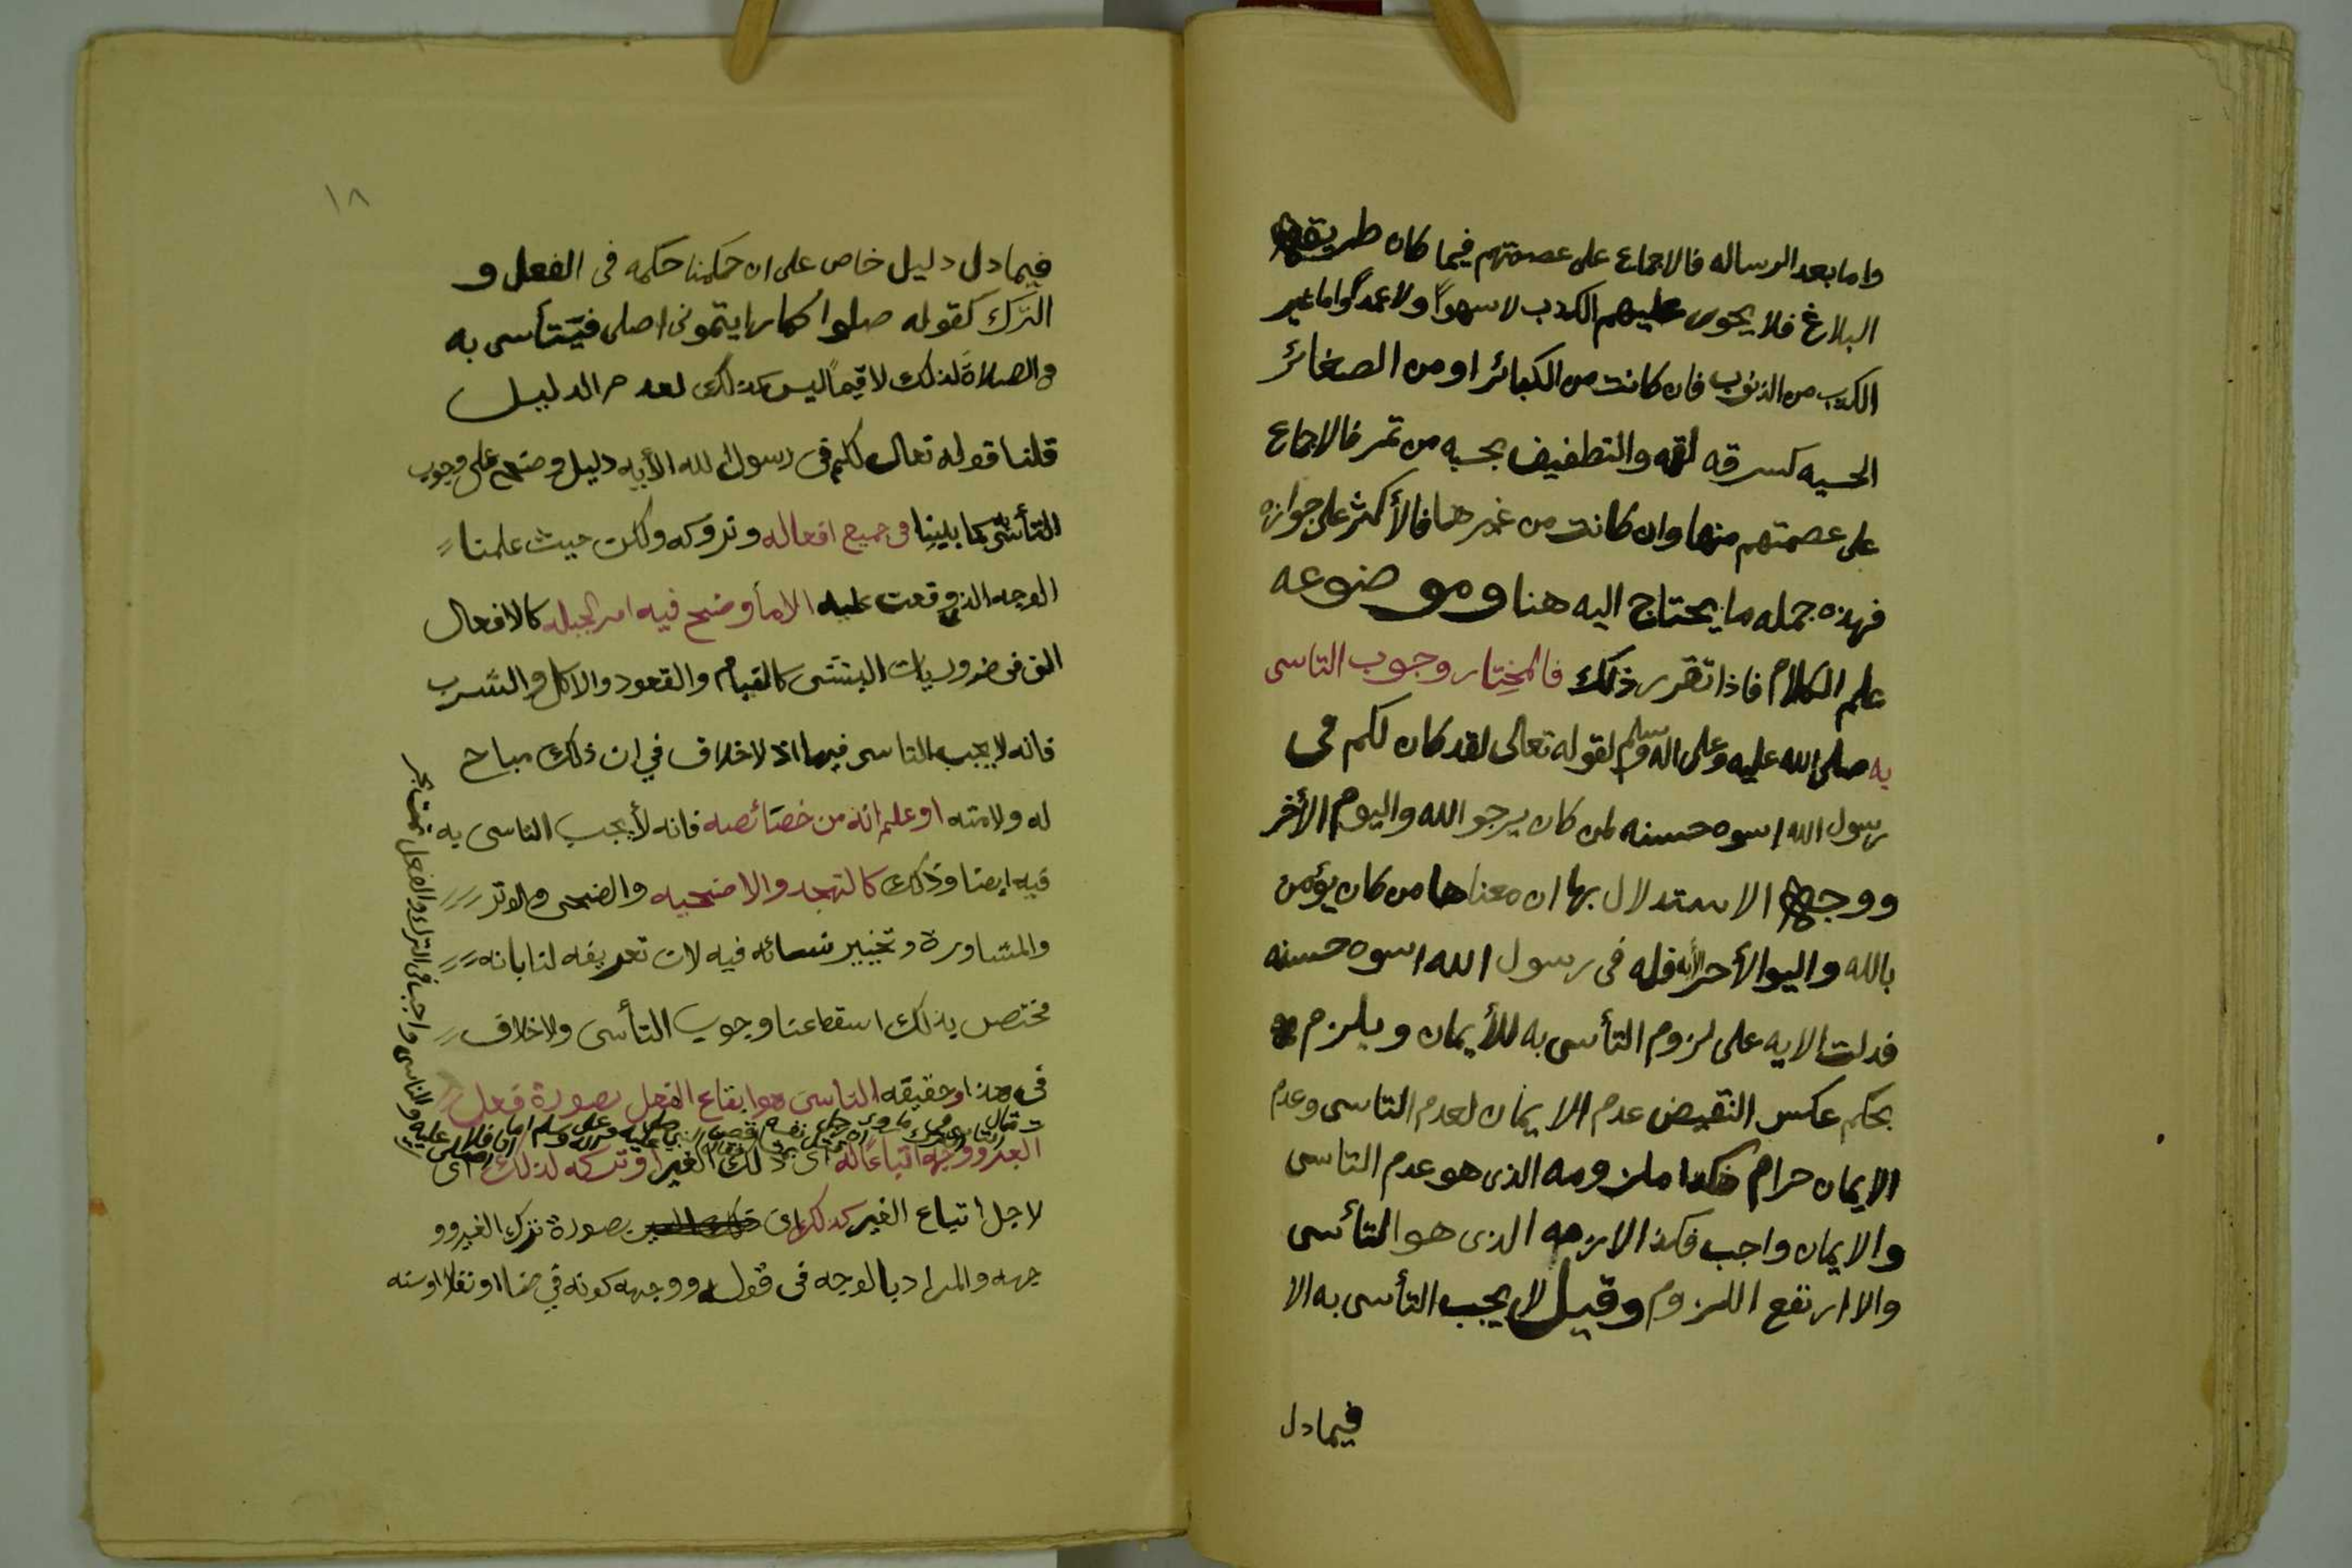 واما بعد الرساله فالاجماع على عصمتهم فيما كان طريقه
البلاغ فلا يجوز عليهم الكذب لا سهواً ولا عمداً واما غير
الكذب من الذنوب فان كانت من الكبائر او من الصغائر
الخسيه كسرقه لقمه والتطفيف بحبه من تمر فالاجماع
على عصمتهم منها وان كانت من غيرهما فالأكثر على جوازه
فهذه جمله ما يحتاج اليه هنا وموضوعه
علم الكلام فاذا تقرر ذلك فالمختار وجوب التاسى
به صلى الله عليه وعلى اله وسلم لقوله تعالى لقد كان لكم فى
رسول الله اسوه حسنه لمن كان يرجو الله واليوم الأخر
ووجه الاستدلال بها ان معناها من كان يؤمن
بالله واليوم الأخر فله فى رسول الله اسوه حسنه
فدلت الايه على لزوم التأسى به للأيمان ويلزم
بحكم عكس النقيض عدم الايمان لعدم التاسى وعدم
الايمان حرام فكذا ملزومه الذى هو عدم التاسى
والايمان واجب فكذا لازمه الذى هو التأسى
والا ارتفع اللزوم وقيل لا يجب التأسى به الا
فيما دل
١٨
فيما دل دليل خاص على ان حكمنا حكمه فى الفعل و
الترك كقوله صلوا كما رايتمونى اصلى فيتأسى به
فى الصلاة لذلك لا فيما ليس كذلك لعدم الدليل
قلنا قوله تعالى لكم فى رسول الله الأيه دليل وضح على وجوب
التأسى به كما بينا فى جميع افعاله وتروكه ولكن حيث علمنا
الوجه الذى وقعت عليه الا ما وضح فيه امر الجبله كالافعال
التى من ضروريات البشر كالقيام والقعود والاكل والشرب
فانه لا يجب التاسى فيها اذ لا خلاف في ان ذلك مباح
له ولامته او علم انه من خصائصه فانه لا يجب التاسى به
فيه ايضا وذلك كالتهجد والاضحيه والضحى والوتر
والمشاورة وتخيير نسائه فيه لان تعريفه لنا بانه
مختص بذلك اسقط عنا وجوب التأسى ولا خلاف
فى هذا وحقيقه التاسى هو ايقاع الفعل بصورة فعل
الغير ووجهه اتباعاً له اى ذلك الغير او تركه لذلك اى
لاجل اتباع الغير كذلك اى بصورة ترك الغير وو
جهه والمراد بالوجه فى قوله ووجهه كونه فرضا او نفلا او سنه
والتاسى واجب فى الترك والفعل